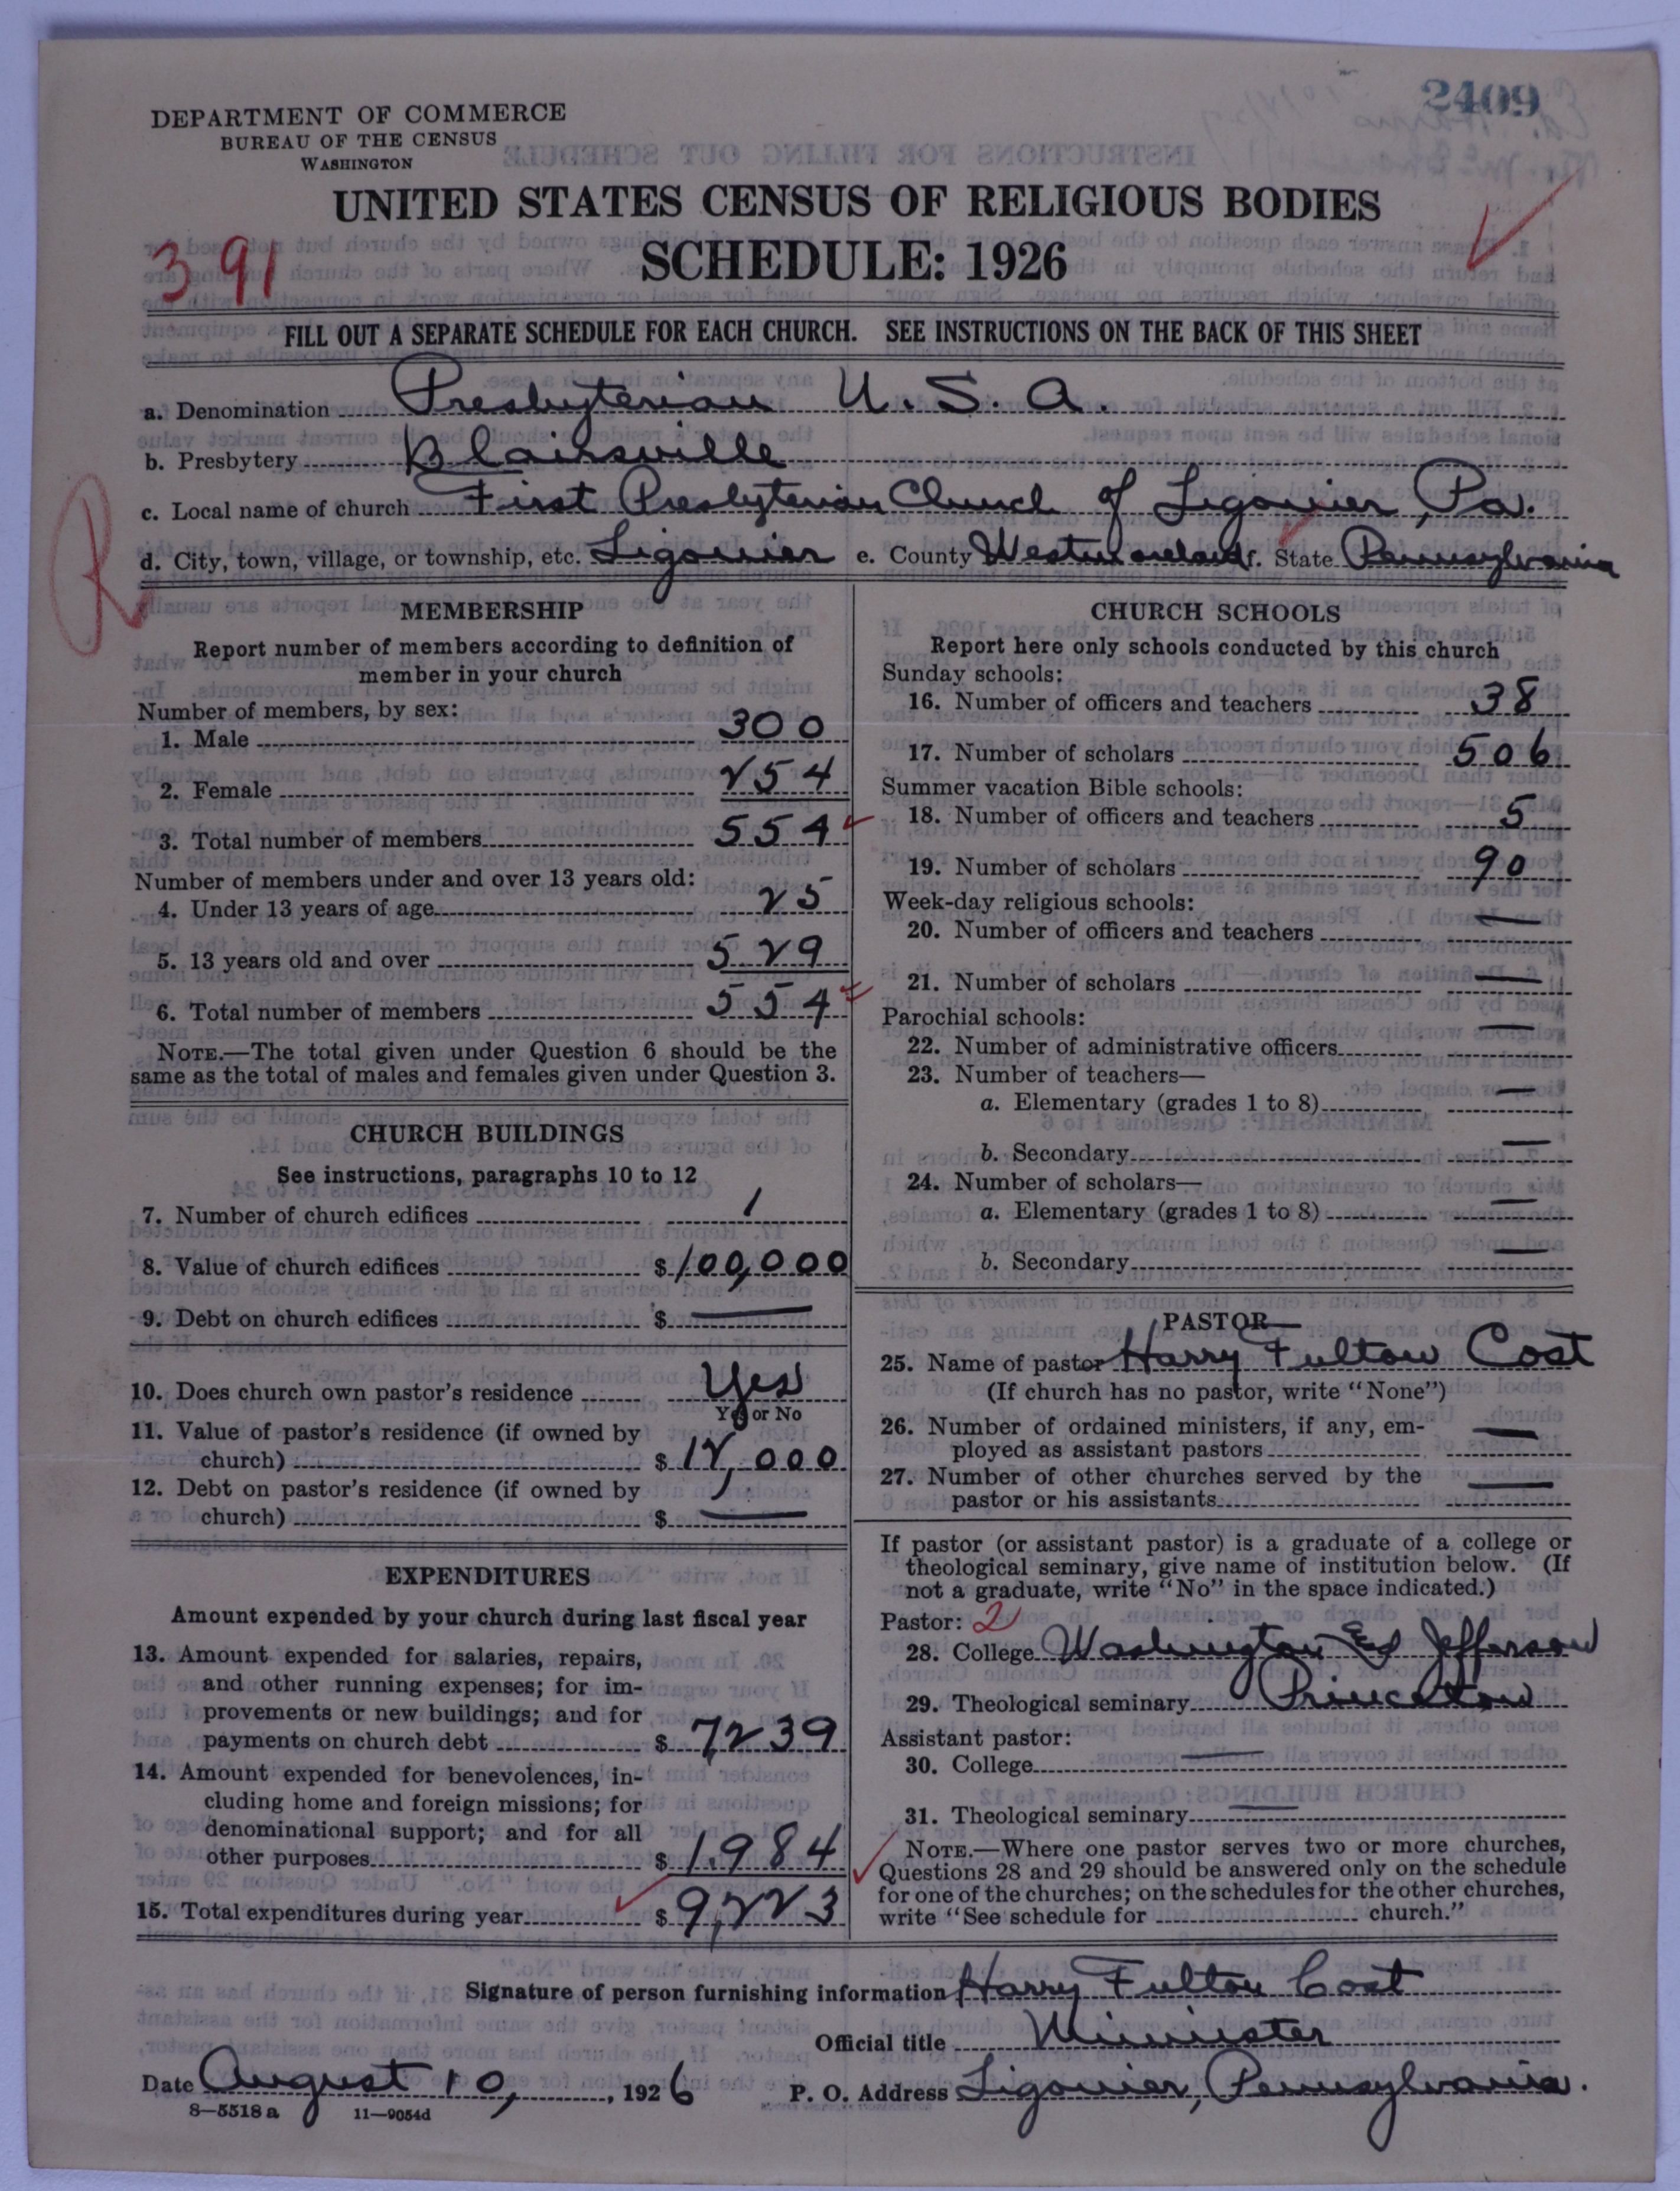 2409
DEPARTMENT OF COMMERCE
BUREAU OF THE CENSUS
WASHINGTON
UNITED STATES CENSUS OF RELIGIOUS BODIES
391
SCHEDULE: 1926
FILL OUT A SEPARATE SCHEDULE FOR EACH CHURCH. SEE INSTRUCTIONS ON THE BACK OF THIS SHEET
a. Denomination Presbyterian U.S.A.
b. Presbytery Blairsville
c. Local name of church First Presbyterian Church of Ligonier, Pa.
d. City, town, village, or township, etc. Ligonier e. County Westmoreland f. State Pennsylvania
R
MEMBERSHIP
Report number of members according to definition of
member in your church
Number of members, by sex:
1. Male 300
2. Female 254
3. Total number of members 554
Number of members under and over 13 years old:
4. Under 13 years of age 25
5. 13 years old and over 529
6. Total number of members 554
NOTE.—The total given under Question 6 should be the
same as the total of males and females given under Question 3.
CHURCH BUILDINGS
See instructions, paragraphs 10 to 12
7. Number of church edifices 1
8. Value of church edifices $100,000
9. Debt on church edifices $ —
10. Does church own pastor's residence Yes
Yes or No
11. Value of pastor's residence (if owned by
church) $12,000
12. Debt on pastor's residence (if owned by
church) $ —
EXPENDITURES
Amount expended by your church during last fiscal year
13. Amount expended for salaries, repairs,
and other running expenses; for im-
provements or new buildings; and for
payments on church debt $7,239
14. Amount expended for benevolences, in-
cluding home and foreign missions; for
denominational support; and for all
other purposes $1,984
15. Total expenditures during year $9,223
CHURCH SCHOOLS
Report here only schools conducted by this church
Sunday schools:
16. Number of officers and teachers 38
17. Number of scholars 506
Summer vacation Bible schools:
18. Number of officers and teachers 5
19. Number of scholars 90
Week-day religious schools:
20. Number of officers and teachers —
21. Number of scholars —
Parochial schools:
22. Number of administrative officers —
23. Number of teachers—
a. Elementary (grades 1 to 8) —
b. Secondary —
24. Number of scholars—
a. Elementary (grades 1 to 8) —
b. Secondary —
PASTOR
25. Name of pastor Harry Fulton Cost
(If church has no pastor, write "None")
26. Number of ordained ministers, if any, em-
ployed as assistant pastors —
27. Number of other churches served by the
pastor or his assistants —
If pastor (or assistant pastor) is a graduate of a college or
theological seminary, give name of institution below. (If
not a graduate, write "No" in the space indicated.)
Pastor: 2
28. College Washington and Jefferson
29. Theological seminary Princeton
Assistant pastor:
30. College —
31. Theological seminary —
NOTE.—Where one pastor serves two or more churches,
Questions 28 and 29 should be answered only on the schedule
for one of the churches; on the schedules for the other churches,
write "See schedule for church."
Signature of person furnishing information Harry Fulton Cost
Official title Minister
Date August 10, 1926 P. O. Address Ligonier, Pennsylvania.
8—5518 a 11—9054d